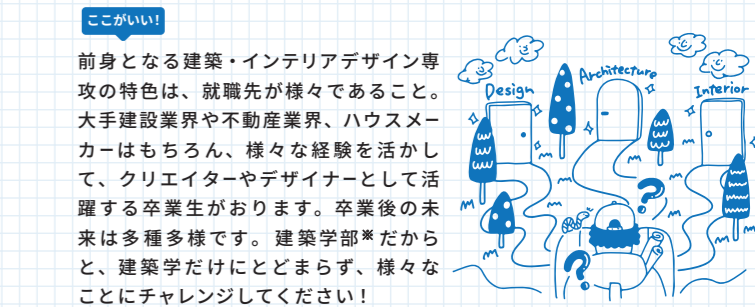 ここがいい!
前身となる建築・インテリアデザイン専
攻の特色は、就職先が様々であること。
大手建設業界や不動産業界、ハウスメー
カーはもちろん、様々な経験を活かし
て、クリエイターやデザイナーとして活
躍する卒業生がおります。卒業後の未
来は多種多様です。建築学部※だから
と、建築学だけにとどまらず、様々な
ことにチャレンジしてください!
Design
Architecture
Interior
?
?